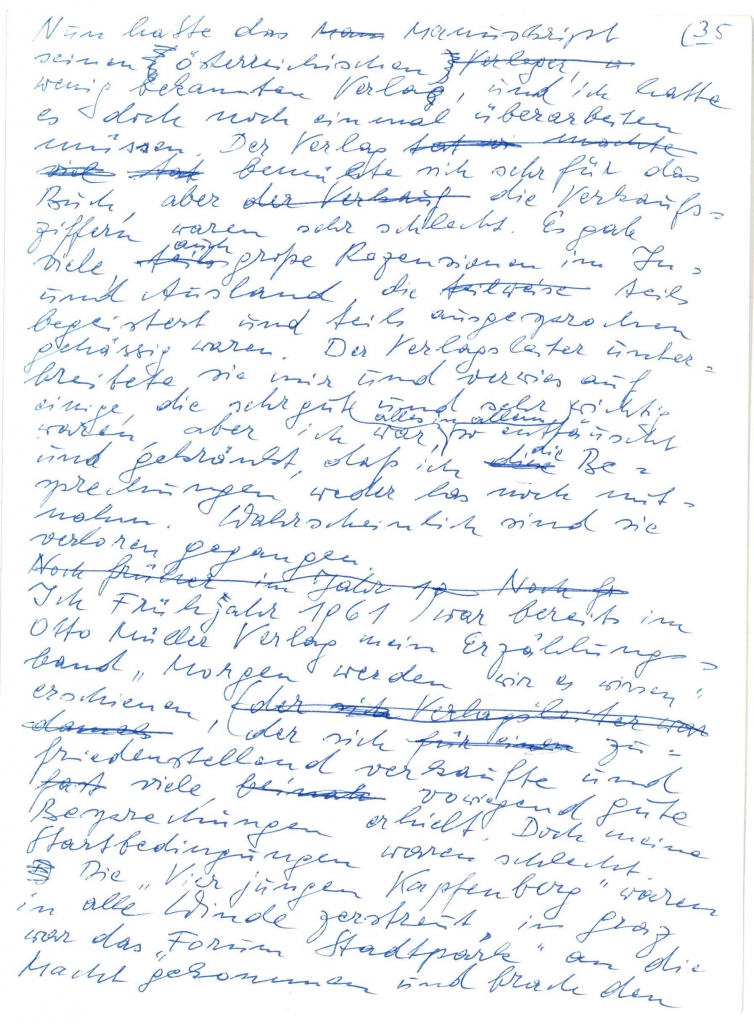 Nun hatte das Man Manuskript (35
seinen österreichischen Verleger, u
wenig bekannten Verlag, und ich hatte
es doch noch einmal überarbeiten
müssen. Der Verlag tat machte
viel tat bemühte sich sehr für das
Buch, aber der Verkauf die Verkaufs=
ziffern waren sehr schlecht. Es gab
viele, teils auch große Rezensionen im In=
und Ausland, die teilweise teils
begeistert und teils ausgesprochen
gehässig waren. Der Verlagsleiter unter=
breitete sie mir und verwies auf
einige, die sehr gute und sehr wichtig
waren, aber ich war, (alles in allem, so enttäuscht
und gekränkt, daß ich diese die Be=
sprechungen weder las noch mit=
nahm. Wahrscheinlich sind sie
verloren gegangen.
Noch früher im Jahr 19 Noch fr
Ich Frühjahr 1961 war bereits im
Otto Müller Verlag mein Erzählungs=
band „Morgen werden wir es wissen"
erschienen, (der sich Verlagsleiter war
damals, (der sich für einen zu=
friedenstellend verkaufte und
fast viele beinah vowiegend gute
Besprechungen erhielt. Doch meine
Startbedingungen waren schlecht.
Die „Vier jungen Kapfenberg" waren
in alle Winde zerstreut, in Graz
war das „Forum Stadtpark" an die
Macht gekommen und brach den